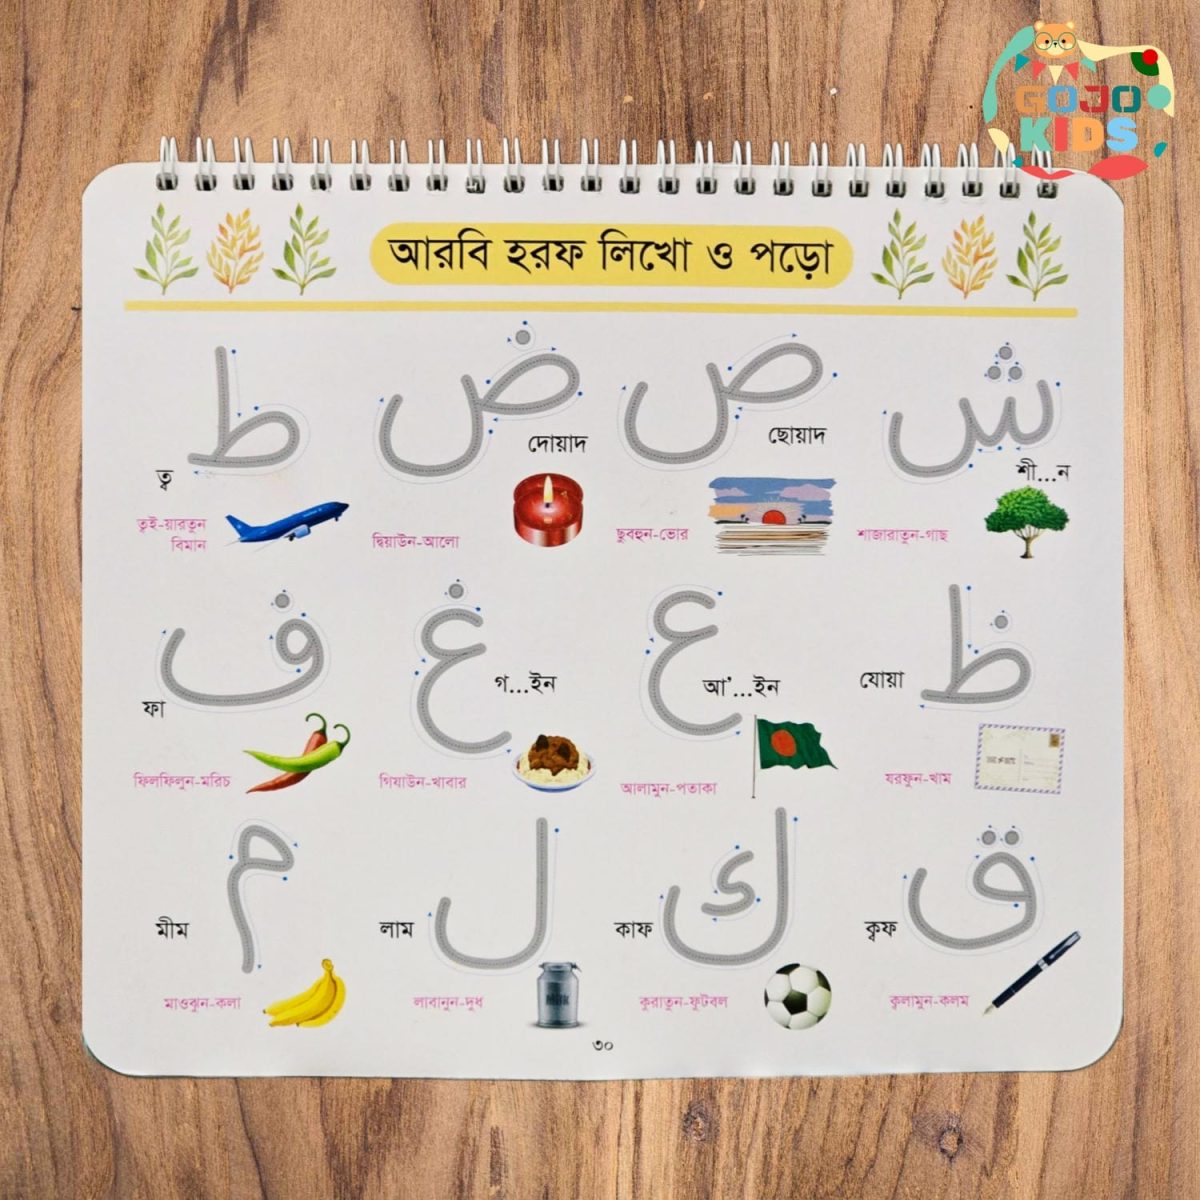 GOJO
KIDS
আরবি হরফ লিখো ও পড়ো
ش
শী...ন
শাজারাতুন-গাছ
ص
ছোয়াদ
ছুবহুন-ভোর
ض
দোয়াদ
দ্বিয়াউন-আলো
ط
ত্ব
ত্বই-য়ারতুন
বিমান
ظ
যোয়া
যরফুন-খাম
ع
আ'...ইন
আলামুন-পতাকা
غ
গ...ইন
গিযাউন-খাবার
ف
ফা
ফিলফিলুন-মরিচ
ق
ক্বফ
ক্বলামুন-কলম
ك
কাফ
কুরাতুন-ফুটবল
ل
লাম
লাবানুন-দুধ
Milk
م
মীম
মাওঝুন-কলা
৩০